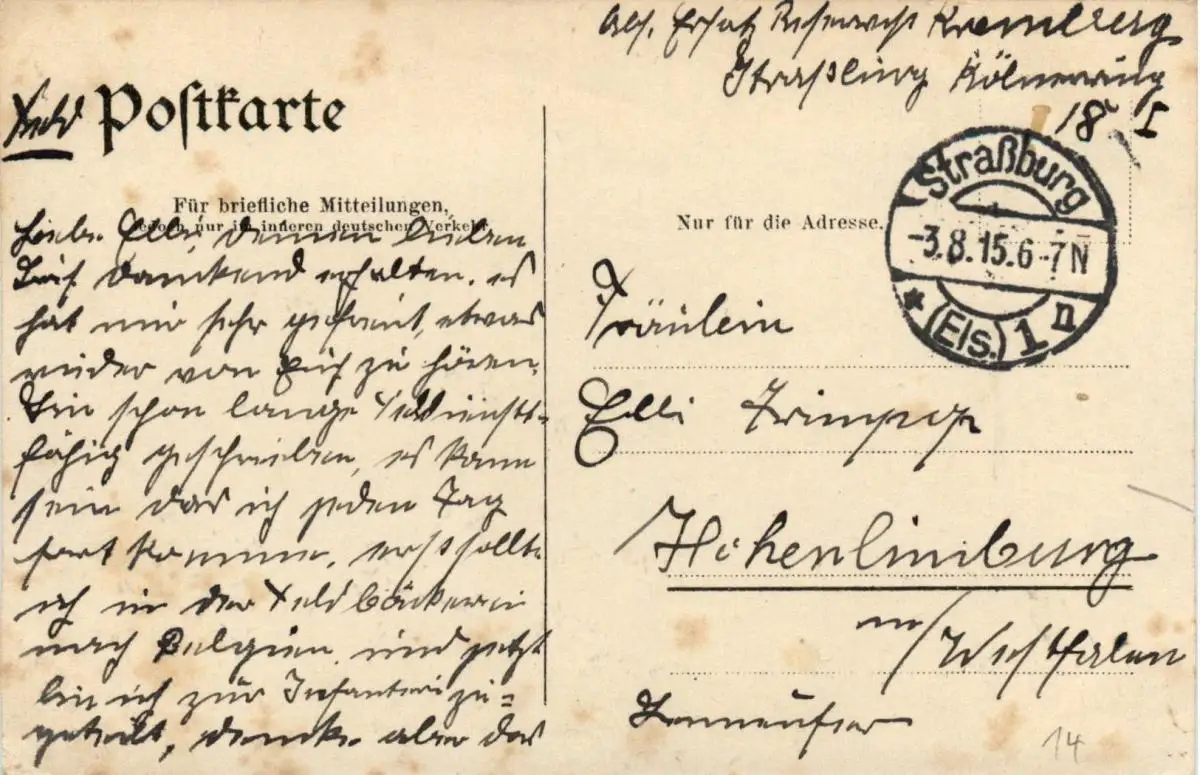 Abs. Ersatz Reservist Kremberg
Straßburg Kölnerring
18 I
Feld Postkarte
Für briefliche Mitteilungen,
jedoch nur im inneren deutschen Verkehr.
Liebe Elli Deinen lieben
Brief dankend erhalten, es
hat mir sehr gefreut, etwas
wieder von Euch zu hören.
Bin schon lange Felddienst-
fähig geschrieben, es kann
sein das ich jeden Tag
fort komme, erst sollte
ich in der Feldbäckerei
nach Belgien, und jetzt
bin ich zur Infanteri zu=
geteilt, denke aber das
Nur für die Adresse.
Straßburg
-3.8.15.6-7N
* (Els.) 1 n
Fräulein
Elli Trimpop
Hohenlimburg
Westfalen
14